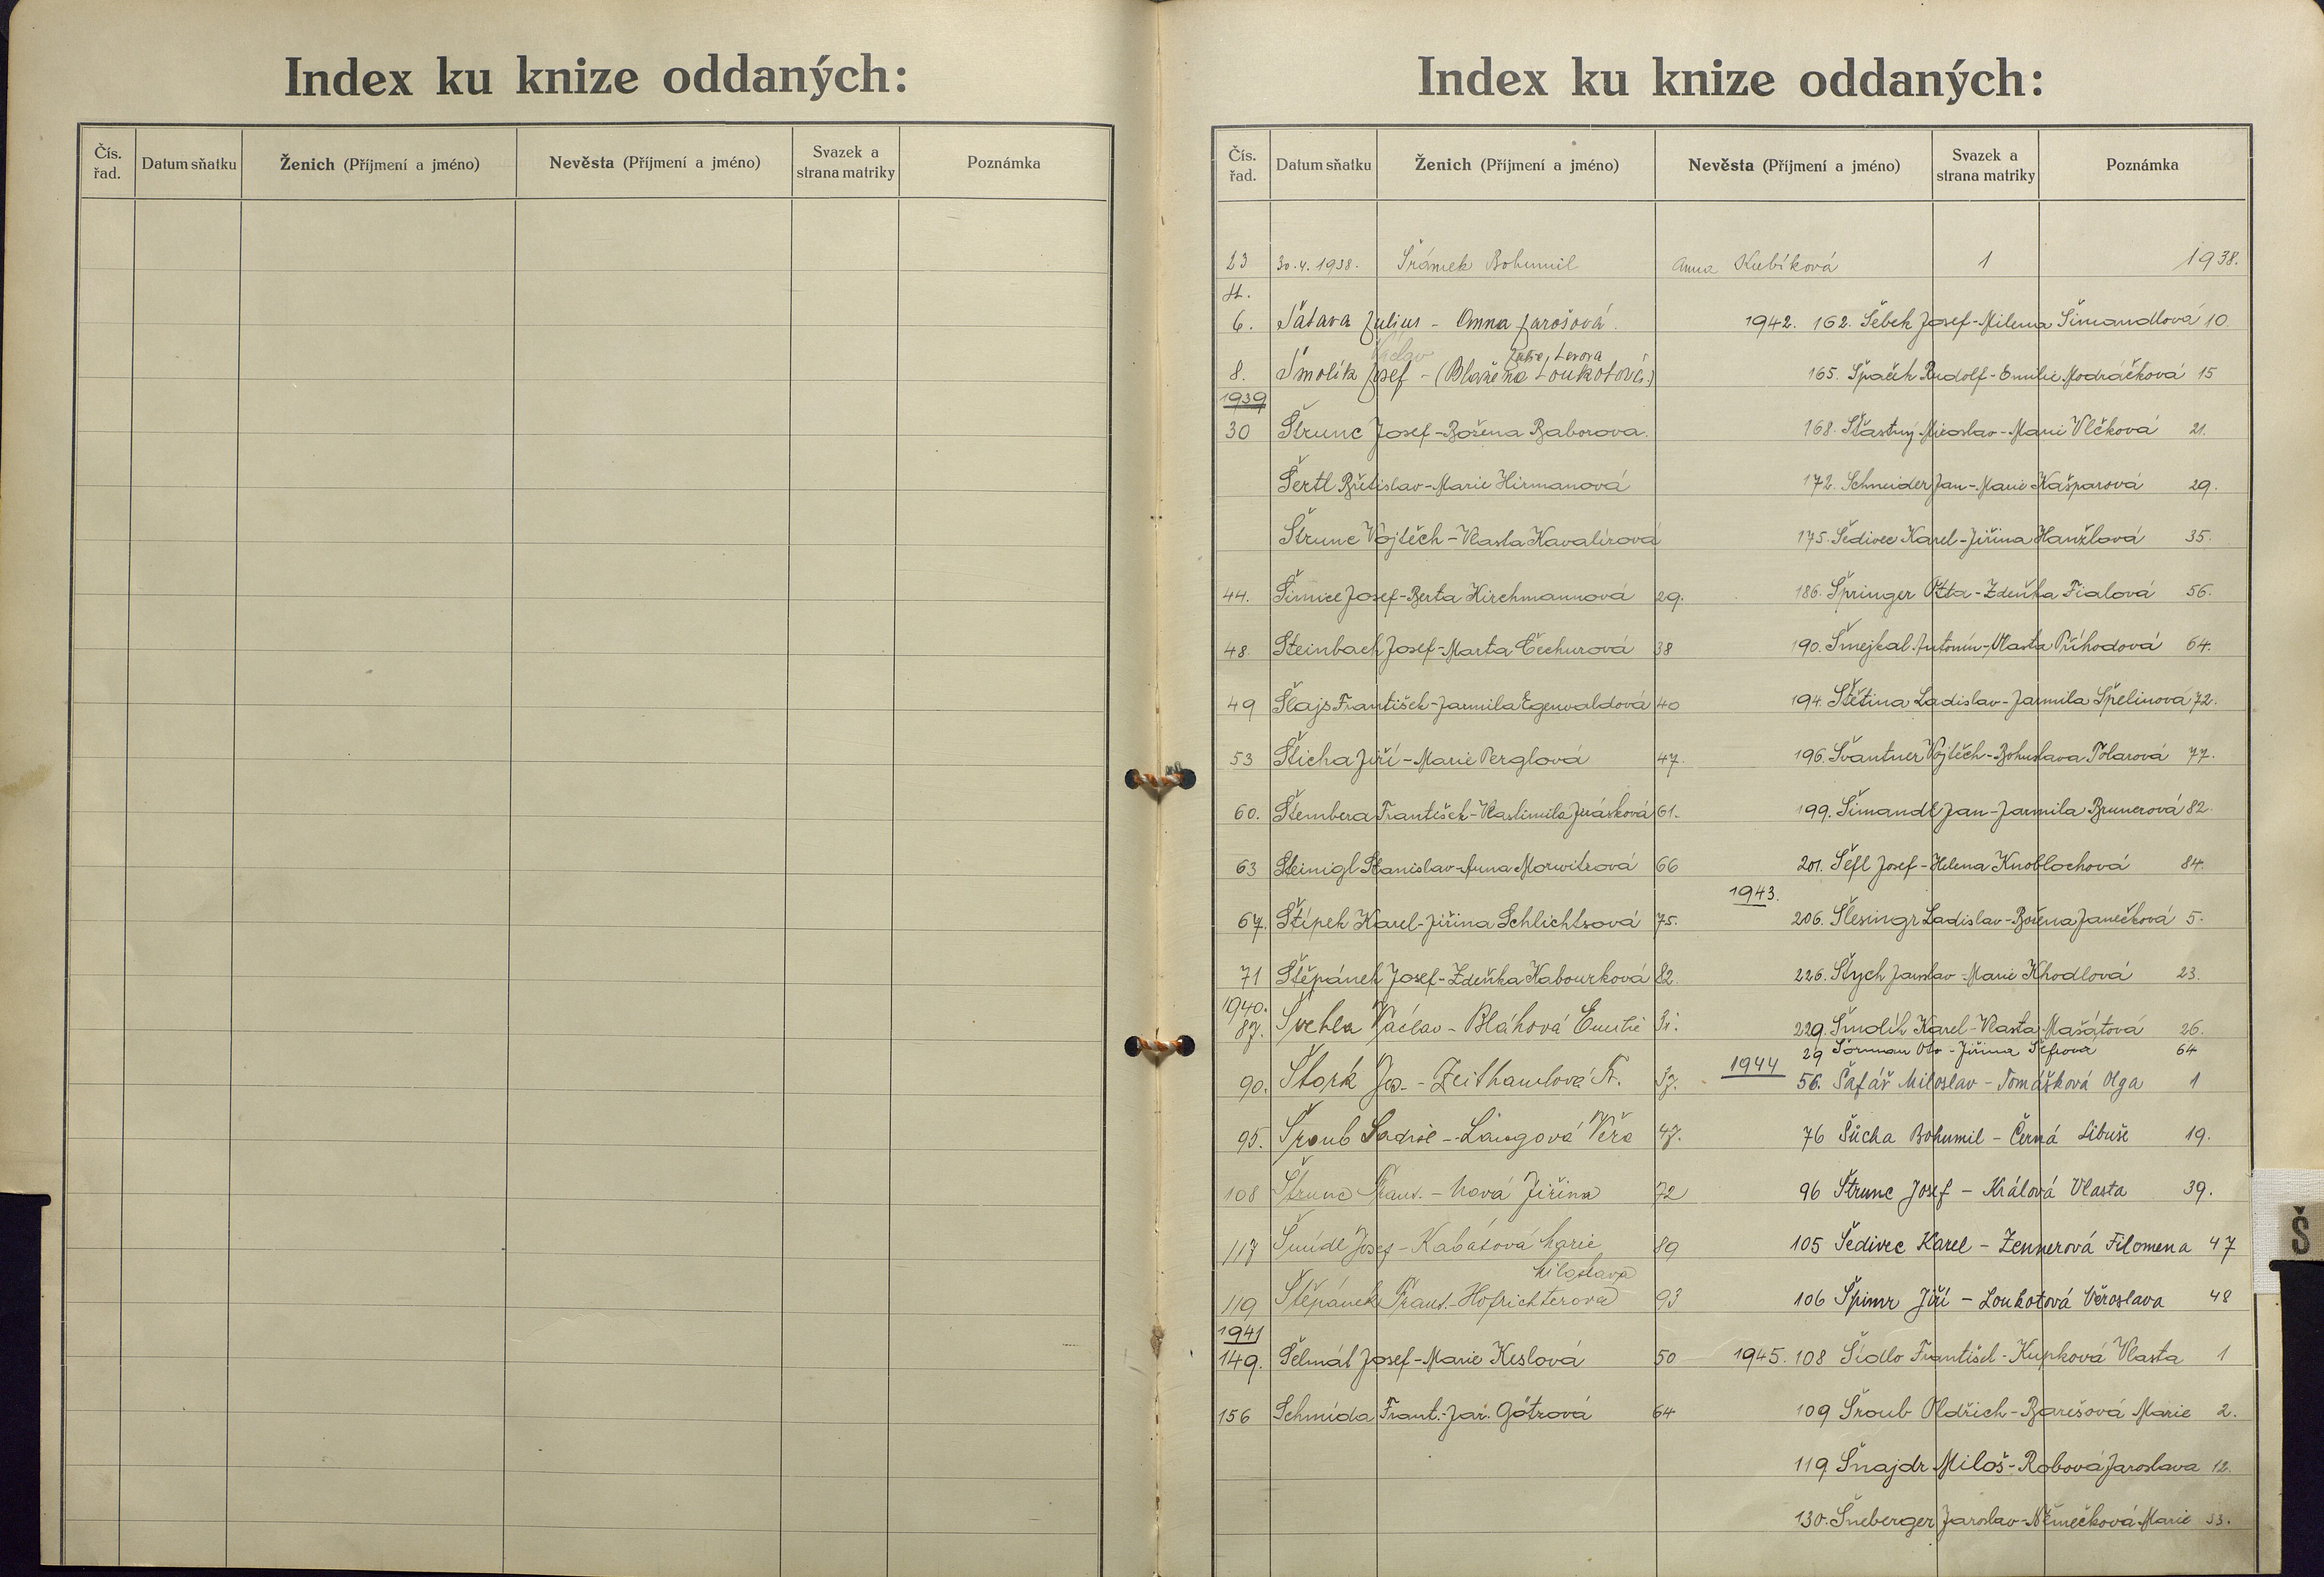 Index ku knize oddaných:
Čís. řad. Datum sňatku Ženich (Příjmení a jméno) Nevěsta (Příjmení a jméno) Svazek a strana matriky Poznámka
Index ku knize oddaných:
Čís. řad. Datum sňatku Ženich (Příjmení a jméno) Nevěsta (Příjmení a jméno) Svazek a strana matriky Poznámka
23 30.4.1938. Šrámek Bohumil Anna Kubíková 1 1938.
6. Šatava Julius - Anna Jarošová.
Václav
8. Šmolík Josef - (Blažena Loukotová.)
1939
30 Štrunc Josef - Božena Baborova.
Šertl Břetislav - Marie Hirmanová
Štrunc Vojtěch - Vlasta Kavalírová
44. Šimice Josef - Berta Kirchmannová 29.
48. Steinbach Josef - Marta Čechurová 38
49 Šlajs František - Jarmila Egerwaldová 40
53 Šticha Jiří - Marie Perglová 47.
60. Štembera František - Vlastimila Jirásková 61.
63 Steinigl Stanislav - Anna Morwitzová 66
67. Štípek Karel - Jiřina Schlichtsová 75.
71 Štěpánek Josef - Zdeňka Kabourková 82.
1940.
87. Švehla Václav - Bláhová Emilie
90. Štork Jos. - Zeithamlová
95. Šroub - Langová Věra 47.
108 Štrunc Frant. - Nová Jiřina 72
117 Šmídl Josef - Kabátová Marie 89
Miloslava
119 Štěpánek Frant. - Hofrichterova 93
1941
149. Šelmát Josef - Marie Keslová 50
156 Schmida Frant. - Jar. Götzová 64
1942. 162. Šebek Josef - Milena Šimandlová 10.
165. Špaček Rudolf - Emilie Modráčková 15
168. Šťastný Miroslav - Marie Vlčková 21.
172. Schneider Jan - Marie Kašparová 29.
175. Šedivec Karel - Jiřina Hanzlová 35.
186. Špringer Otta - Zdeňka Fialová 56.
190. Šmejkal Antonín - Vlasta Příhodová 64.
194. Štětina Ladislav - Jarmila Špelinová 72.
196. Švantner Vojtěch - Bohuslava Tolarová 77.
199. Šimandl Jan - Jarmila Brunerová 82.
201. Šefl Josef - Helena Knoblochová 84.
1943.
206. Šlesingr Ladislav - Božena Janečková 5.
226. Štych Jaroslav - Marie Khodlová 23.
229. Šmolík Karel - Vlasta Mašátová 26.
29 Šorman Oto - Jiřina Šefrová 64
1944 56. Šafář Miloslav - Tomášková Olga 1
76 Šůcha Bohumil - Černá Libuše 19.
96 Štrunc Josef - Králová Vlasta 39.
105 Šedivec Karel - Zennerová Filomena 47
106 Špimr Jiří - Loukotová Věroslava 48
1945. 108 Šídlo František - Kupková Vlasta 1
109 Šroub Oldřich - Barešová Marie 2.
119 Šnajdr Miloš - Robová Jaroslava 12.
130. Šneberger Jaroslav - Němečková Marie
Š